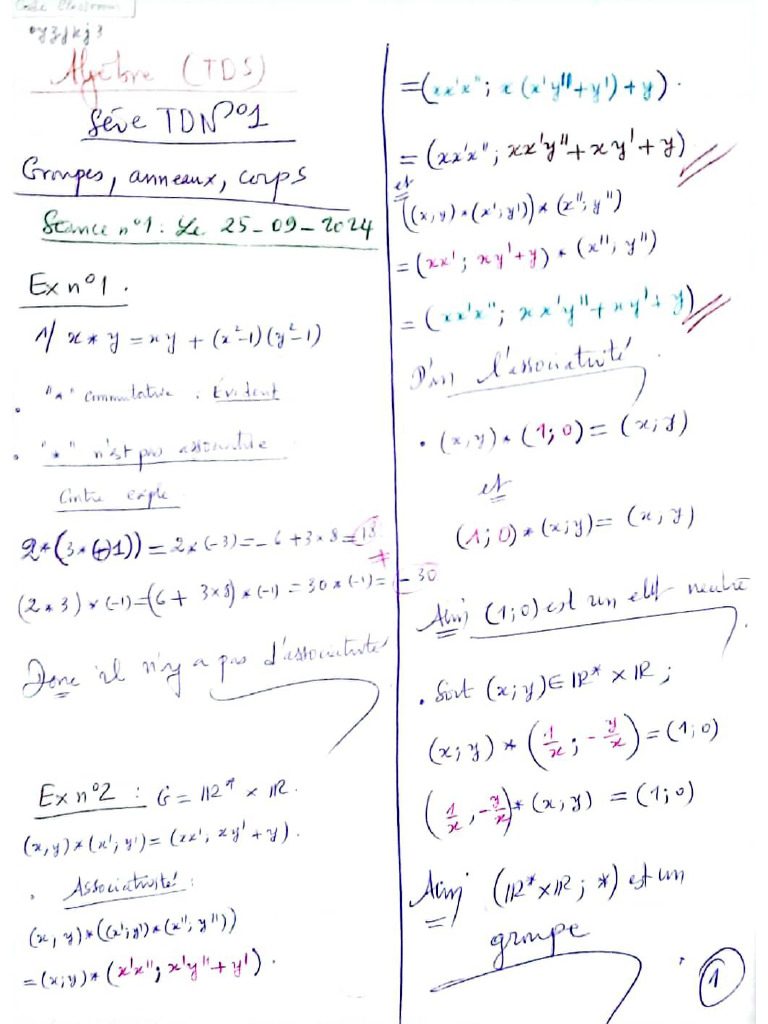 Code Classroom
oy3fkj3
Algèbre (TDS)
Série TDN°01
Groupes, anneaux, corps
Séance n°1: Le 25-09-2024
Ex n°1.
1/ x * y = xy + (x²-1)(y²-1)
"*" commutative : Évident
"*" n'est pas associative
Contre exple
2*(3*(-1)) = 2*(-3) = -6+3×8 = 18
≠
(2*3)*(-1) = (6+ 3×8)*(-1) = 30*(-1) = -30
Donc il n'y a pas d'associativité
Ex n°2 : G = IR* × IR.
(x,y)*(x';y') = (xx', xy'+y).
. Associativité :
(x, y)*((x';y')*(x''; y''))
= (x;y)*(x'x''; x'y''+y').
= (xx'x''; x(x'y''+y')+y).
= (xx'x''; xx'y''+xy'+y)
et
((x,y)*(x',y'))*(x''; y'')
= (xx'; xy'+y)*(x''; y'')
= (xx'x''; xx'y''+xy'+y)
D'où l'associativité
. (x,y)*(1;0) = (x;y)
et
(1;0)*(x;y) = (x,y)
Ainsi (1;0) est un elt neutre
. Soit (x;y)∈IR* × IR ;
(x;y)*(1/x ; -y/x) = (1;0)
(1/x , -y/x)*(x;y) = (1;0)
Ainsi (IR*×IR ; *) est un
groupe
1